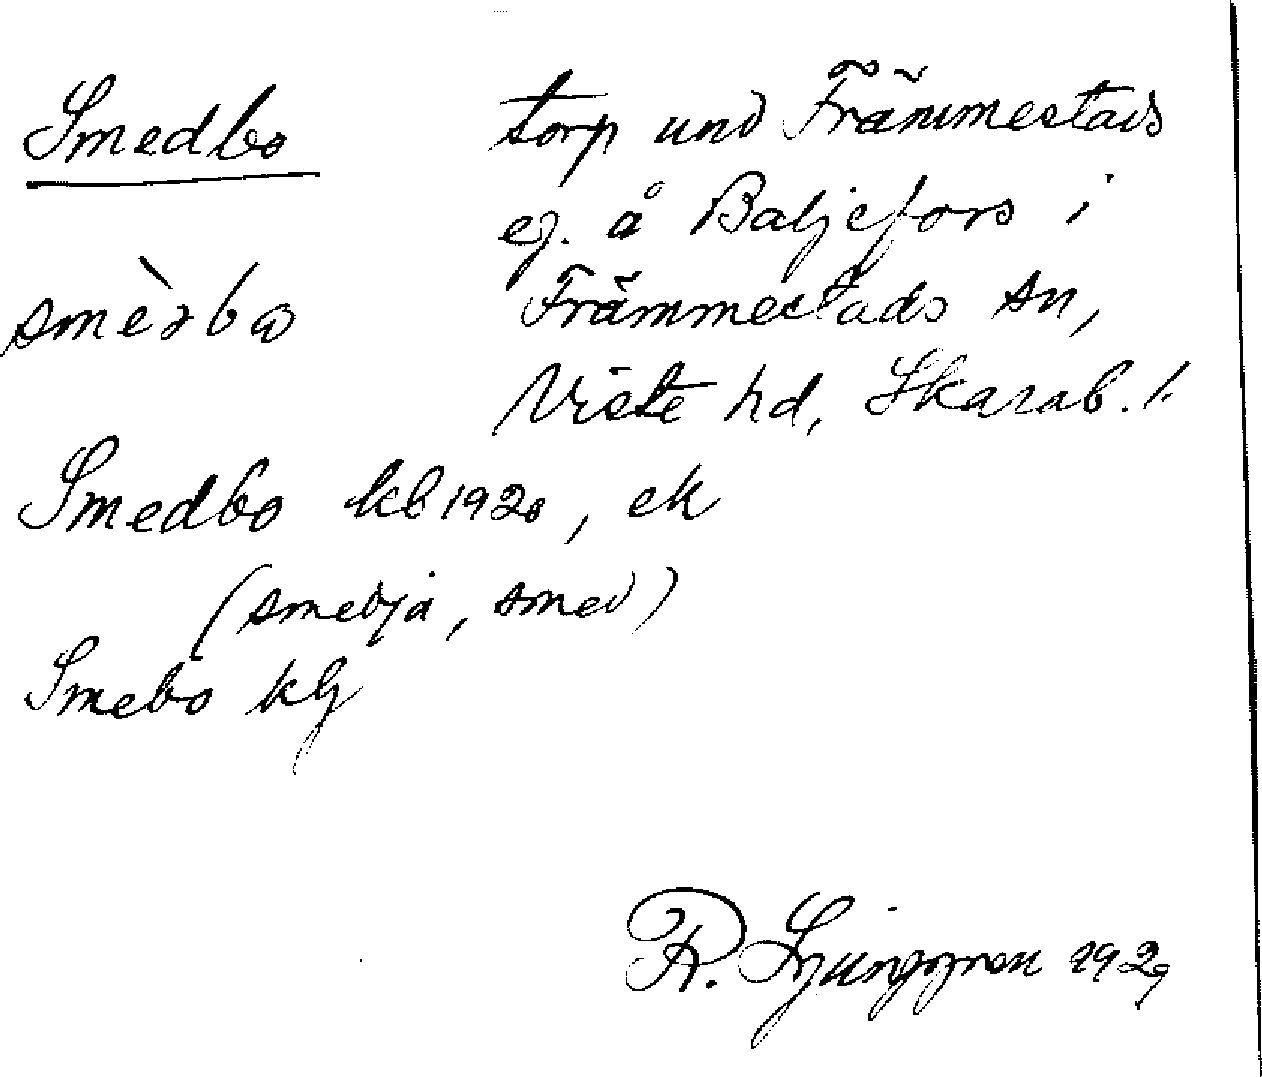 Smedbo
torp und Främmestads
eg. å Baljefors i
Främmestads sn,
Viste hd, Skarab. l.
smèdbo
Smedbo kb 1920, ek
(smedja, smed)
Smebo kg
R. Ljunggren 1929